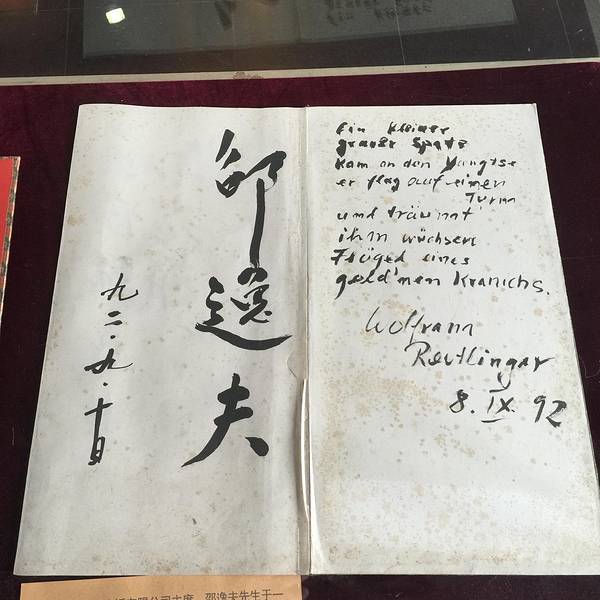 邵逸夫
九二.九.十日
Ein kleiner
grauer Spatz
kam an den Yangtse
er flog auf einen
Turm
und träumt'
ihm wüchsen
Flügel eines
gold'nen Kranichs.
Wolfram
Reutlinger
8. IX. 92
有限公司主席，邵逸夫先生于一